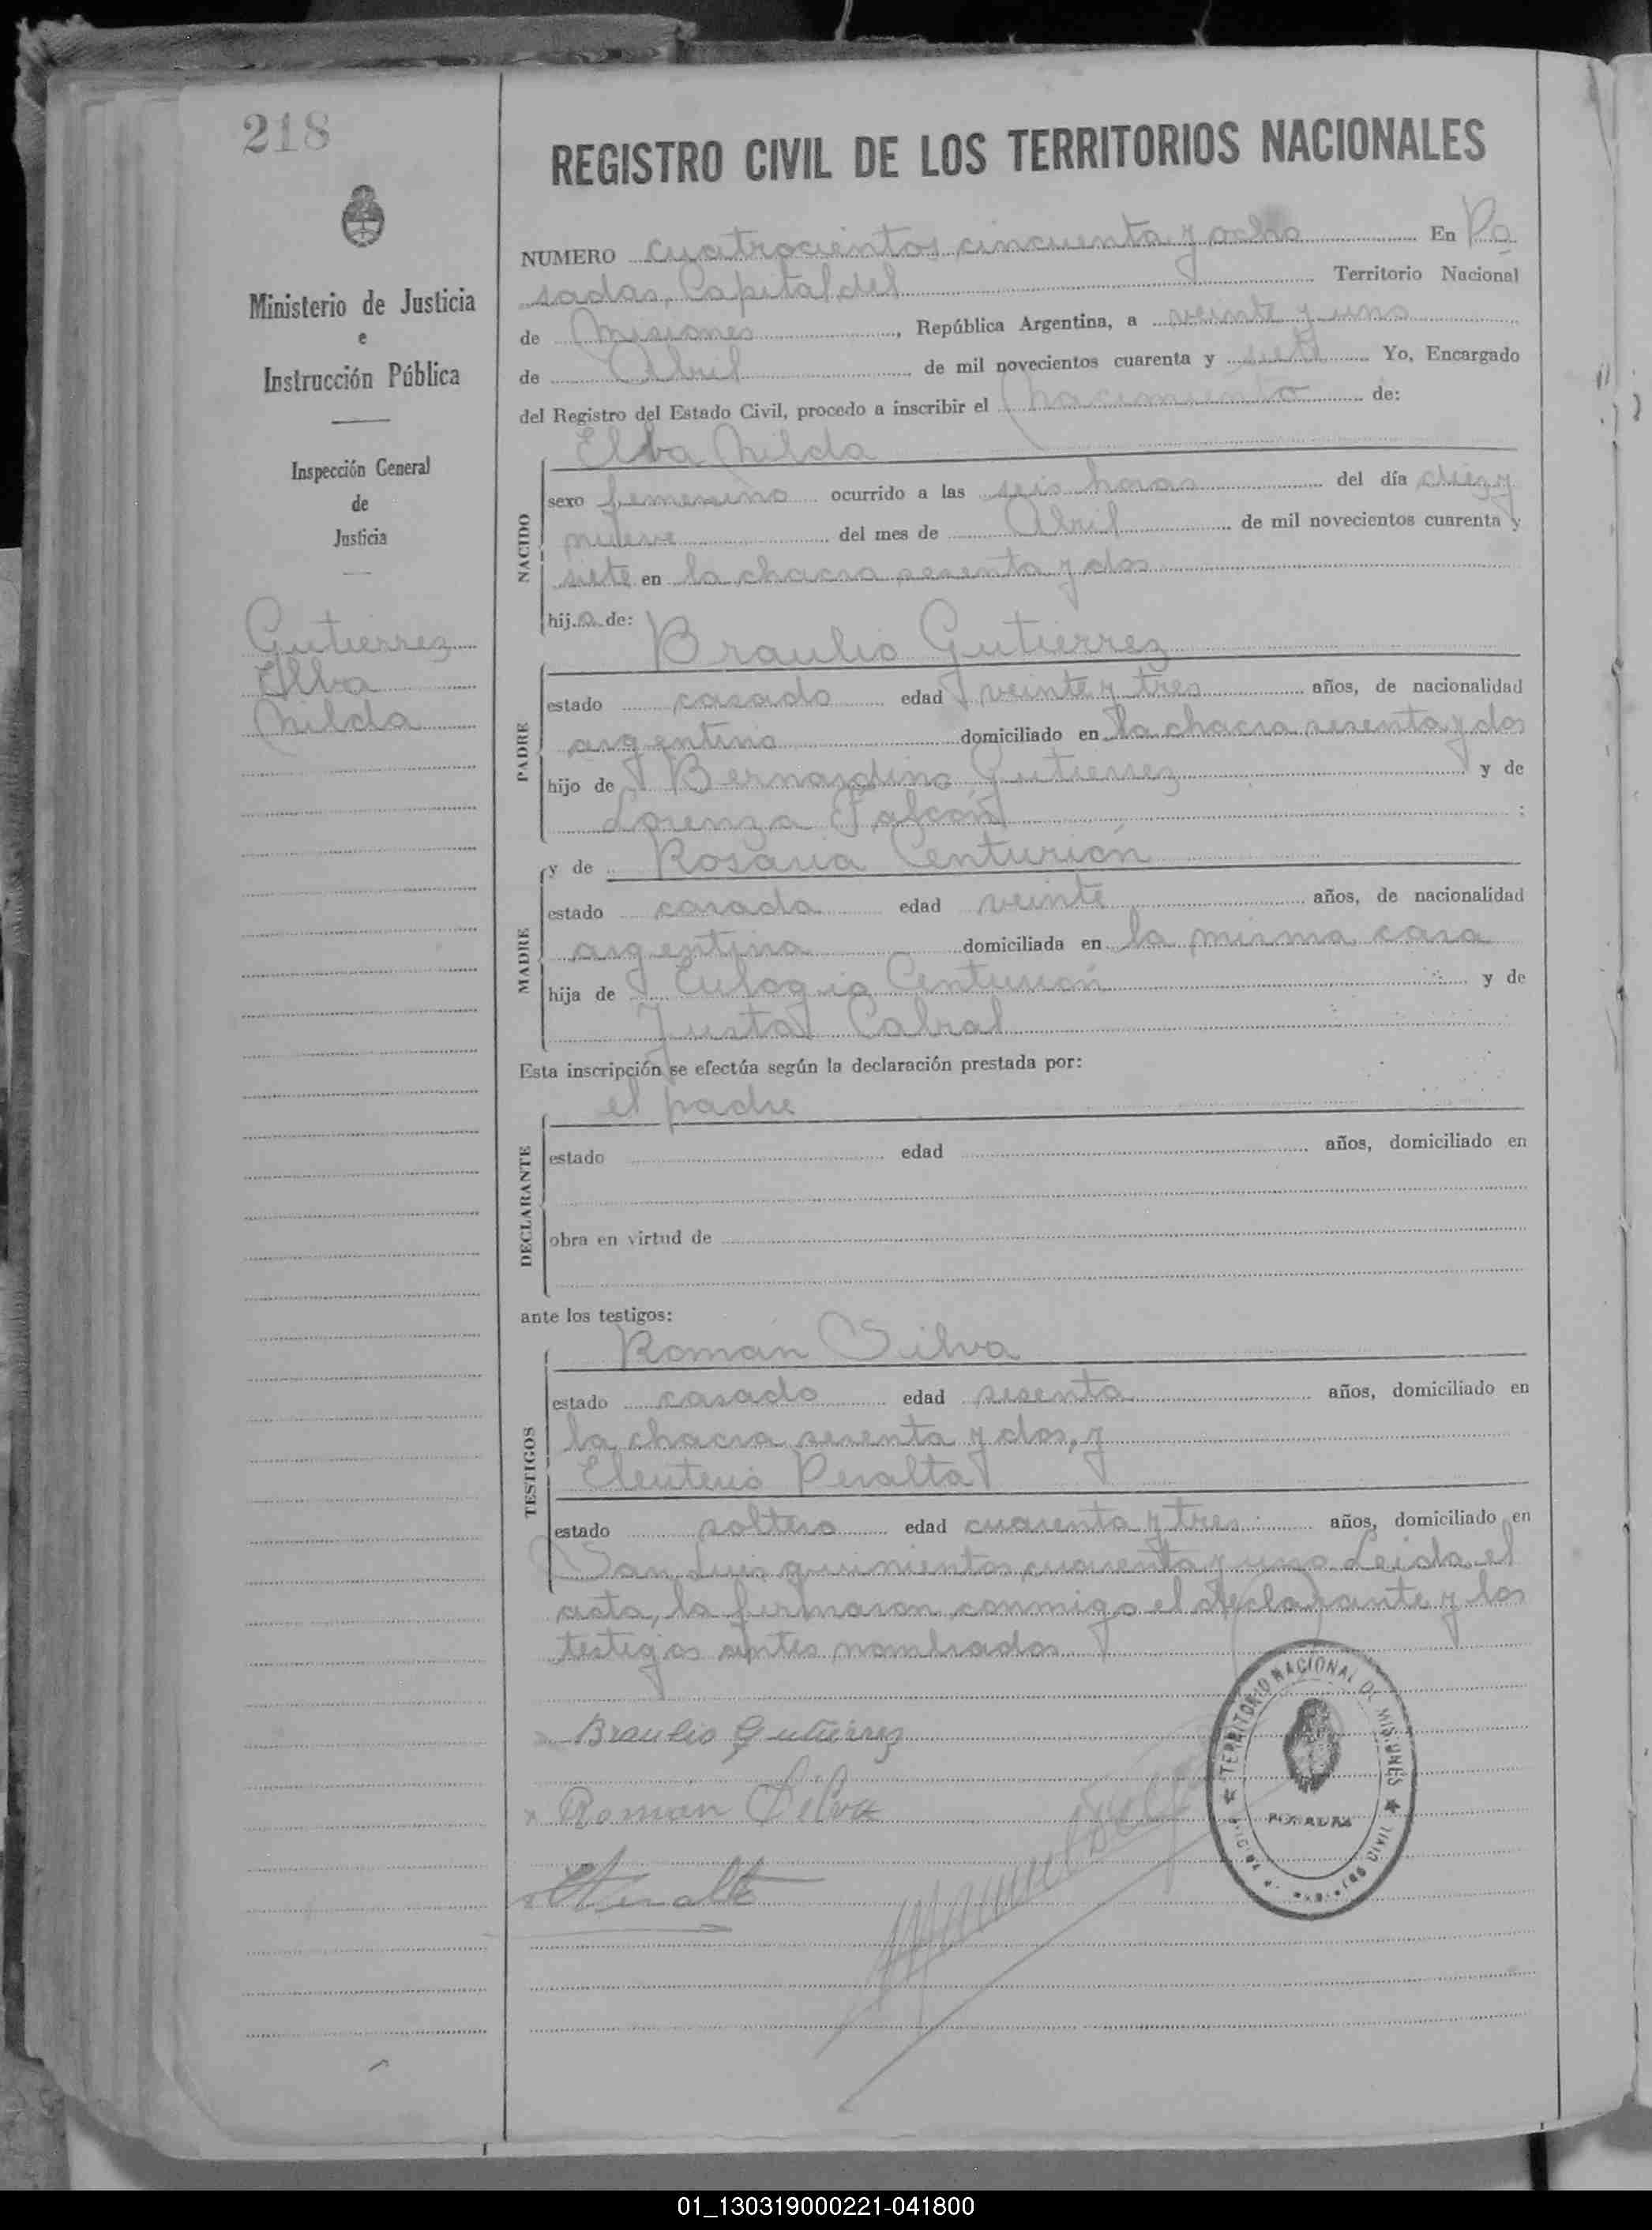 218
Ministerio de Justicia
e
Instrucción Pública
Inspección General
de
Justicia
Gutierrez
Elba
Nilda
REGISTRO CIVIL DE LOS TERRITORIOS NACIONALES
NUMERO cuatrocientos cincuenta y ocho En Po
sadas, Capital del Territorio Nacional
de Misiones, República Argentina, a veinte y uno
de Abril de mil novecientos cuarenta y siete Yo, Encargado
del Registro del Estado Civil, procedo a inscribir el nacimiento de:
Elba Nilda
NACIDO
sexo femenino ocurrido a las seis horas del día diez y
nueve del mes de Abril de mil novecientos cuarenta y
siete en la chacra sesenta y dos
hija de:
Braulio Gutierrez
PADRE
estado casado edad veinte y tres años, de nacionalidad
argentina domiciliado en la chacra sesenta y dos
hijo de Bernardino Gutierrez y de
Lorenza Falcón ;
y de Rosaria Centurión
MADRE
estado casada edad veinte años, de nacionalidad
argentina domiciliada en la misma casa
hija de Eulogio Centurión y de
Justa Cabral
Esta inscripción se efectúa según la declaración prestada por:
el padre
DECLARANTE
estado edad años, domiciliado en
obra en virtud de
ante los testigos:
Román Silva
TESTIGOS
estado casado edad sesenta años, domiciliado en
la chacra sesenta y dos, y
Eleuterio Peralta
estado soltero edad cuarenta y tres años, domiciliado en
San Luis quinientos cuarenta y uno. Leida el
acta, la firmaron conmigo el declarante y los
testigos antes nombrados
Braulio Gutierrez
Román Silva
TERRITORIO NACIONAL DE MISIONES
POSADAS
CIVIL
01_130319000221-041800